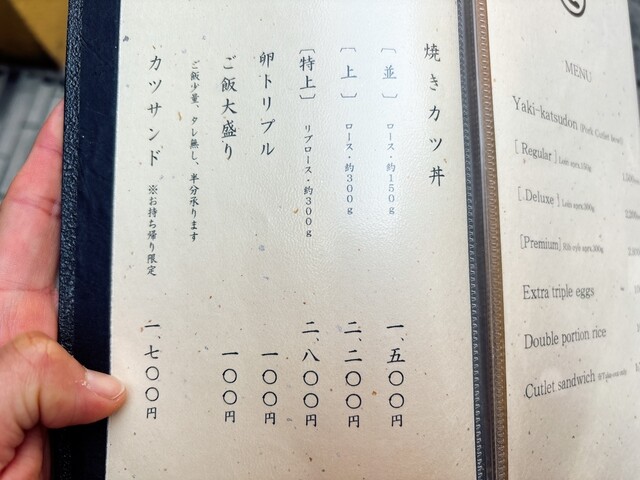 焼きカツ丼
［並］ ロース・約150g 一、五〇〇円
［上］ ロース・約300g 二、二〇〇円
［特上］ リブロース・約300g 二、八〇〇円
卵トリプル 一〇〇円
ご飯大盛り 一〇〇円
ご飯少量、タレ無し、半分承ります
カツサンド ※お持ち帰り限定 一、七〇〇円
MENU
Yaki-katsudon (Pork Cutlet bowl)
[ Regular ] Loin aprx.150g
[ Deluxe ] Loin aprx.300g
[Premium] Rib eye aprx.300g
Extra triple eggs
Double portion rice
Cutlet sandwich